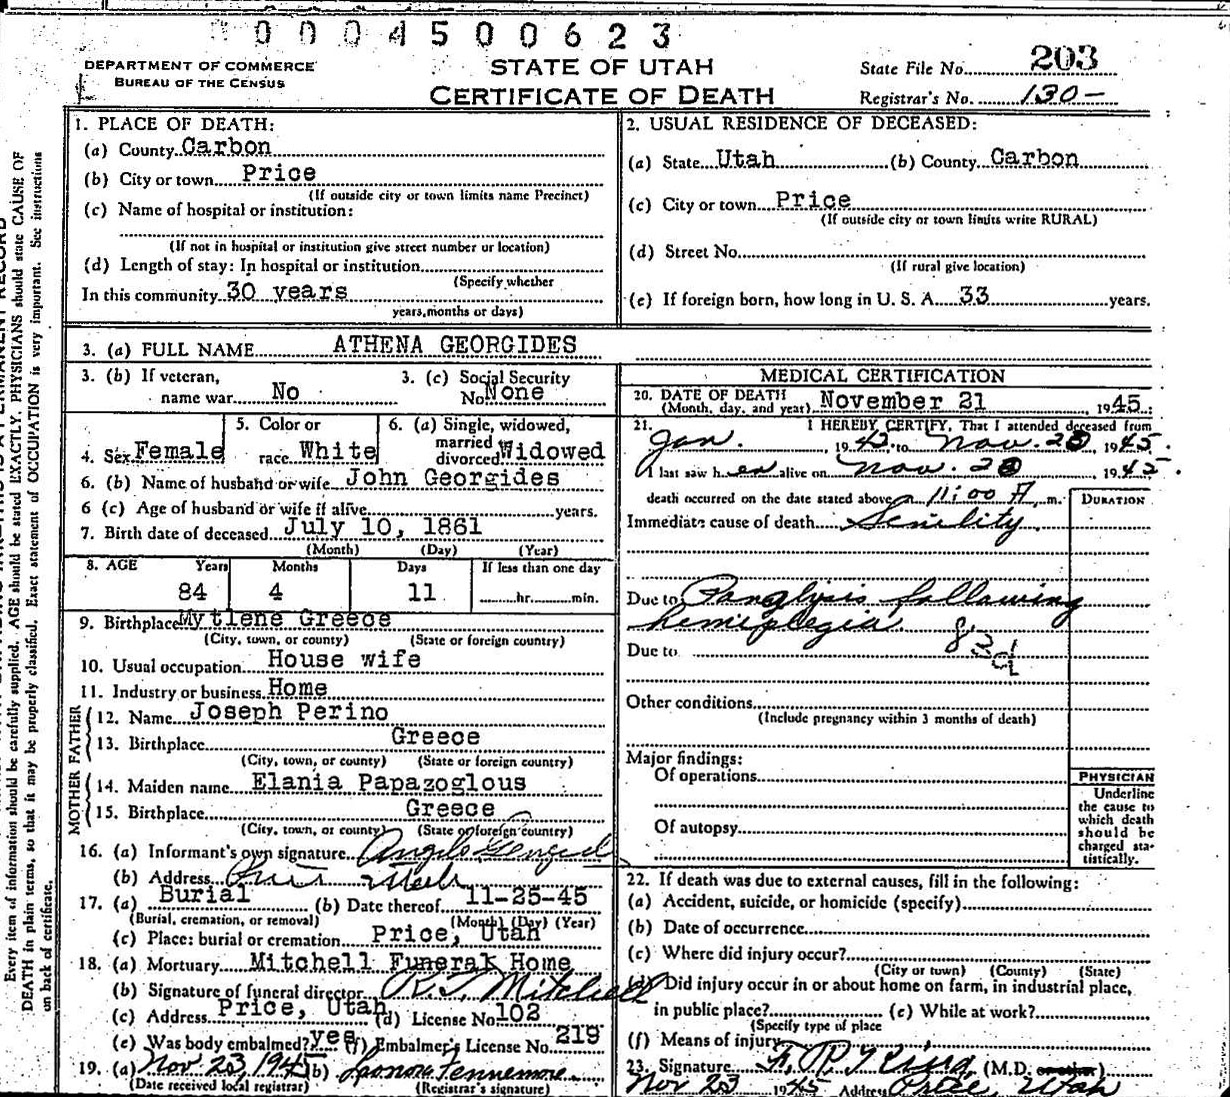 0004500623
DEPARTMENT OF COMMERCE
BUREAU OF THE CENSUS
STATE OF UTAH
CERTIFICATE OF DEATH
State File No. 203
Registrar's No. 130-
Every item of information should be carefully supplied. AGE should be stated EXACTLY. PHYSICIANS should state CAUSE OF
DEATH in plain terms, so that it may be properly classified. Exact statement of OCCUPATION is very important. See instructions
on back of certificate.
1. PLACE OF DEATH:
(a) County Carbon
(b) City or town Price
(If outside city or town limits name Precinct)
(c) Name of hospital or institution:
(If not in hospital or institution give street number or location)
(d) Length of stay: In hospital or institution
(Specify whether
In this community 30 years
years, months or days)
2. USUAL RESIDENCE OF DECEASED:
(a) State Utah (b) County Carbon
(c) City or town Price
(If outside city or town limits write RURAL)
(d) Street No.
(If rural give location)
(e) If foreign born, how long in U. S. A. 33 years.
3. (a) FULL NAME ATHENA GEORGIDES
3. (b) If veteran, name war No
3. (c) Social Security No. None
4. Sex Female
5. Color or race White
6. (a) Single, widowed, married divorced Widowed
6. (b) Name of husband or wife John Georgides
6 (c) Age of husband or wife if alive years.
7. Birth date of deceased July 10, 1861
(Month) (Day) (Year)
8. AGE Years Months Days If less than one day
84 4 11 hr. min.
9. Birthplace Mytlene Greece
(City, town, or county) (State or foreign country)
10. Usual occupation House wife
11. Industry or business Home
FATHER
12. Name Joseph Perino
13. Birthplace Greece
(City, town, or county) (State or foreign country)
MOTHER
14. Maiden name Elania Papazoglous
15. Birthplace Greece
(City, town, or county) (State or foreign country)
16. (a) Informant's own signature Angelo
(b) Address
17. (a) Burial (b) Date thereof 11-25-45
(Burial, cremation, or removal) (Month) (Day) (Year)
(c) Place: burial or cremation Price, Utah
18. (a) Mortuary Mitchell Funeral Home
(b) Signature of funeral director R.J. Mitchell
(c) Address Price, Utah (d) License No. 102
(e) Was body embalmed? yes (f) Embalmer's License No. 219
19. (a) Nov. 23, 1945 (b) Leonora Tennemore
(Date received local registrar) (Registrar's signature)
MEDICAL CERTIFICATION
20. DATE OF DEATH
(Month, day, and year) November 21, 1945
21. I HEREBY CERTIFY, That I attended deceased from
Jan. 1945, to Nov. 20, 1945.
I last saw her alive on Nov. 20 1945.
death occurred on the date stated above 11:00 A. m.
DURATION
Immediate cause of death Senility
Due to Paralysis following
hemiplegia. 83d
Due to
Other conditions
(Include pregnancy within 3 months of death)
Major findings:
Of operations
Of autopsy
PHYSICIAN
Underline
the cause to
which death
should be
charged sta-
tistically.
22. If death was due to external causes, fill in the following:
(a) Accident, suicide, or homicide (specify)
(b) Date of occurrence
(c) Where did injury occur?
(City or town) (County) (State)
(d) Did injury occur in or about home on farm, in industrial place,
in public place? (e) While at work?
(Specify type of place
(f) Means of injury
23. Signature (M.D. or other)
Nov 23 1945 Address Price, Utah